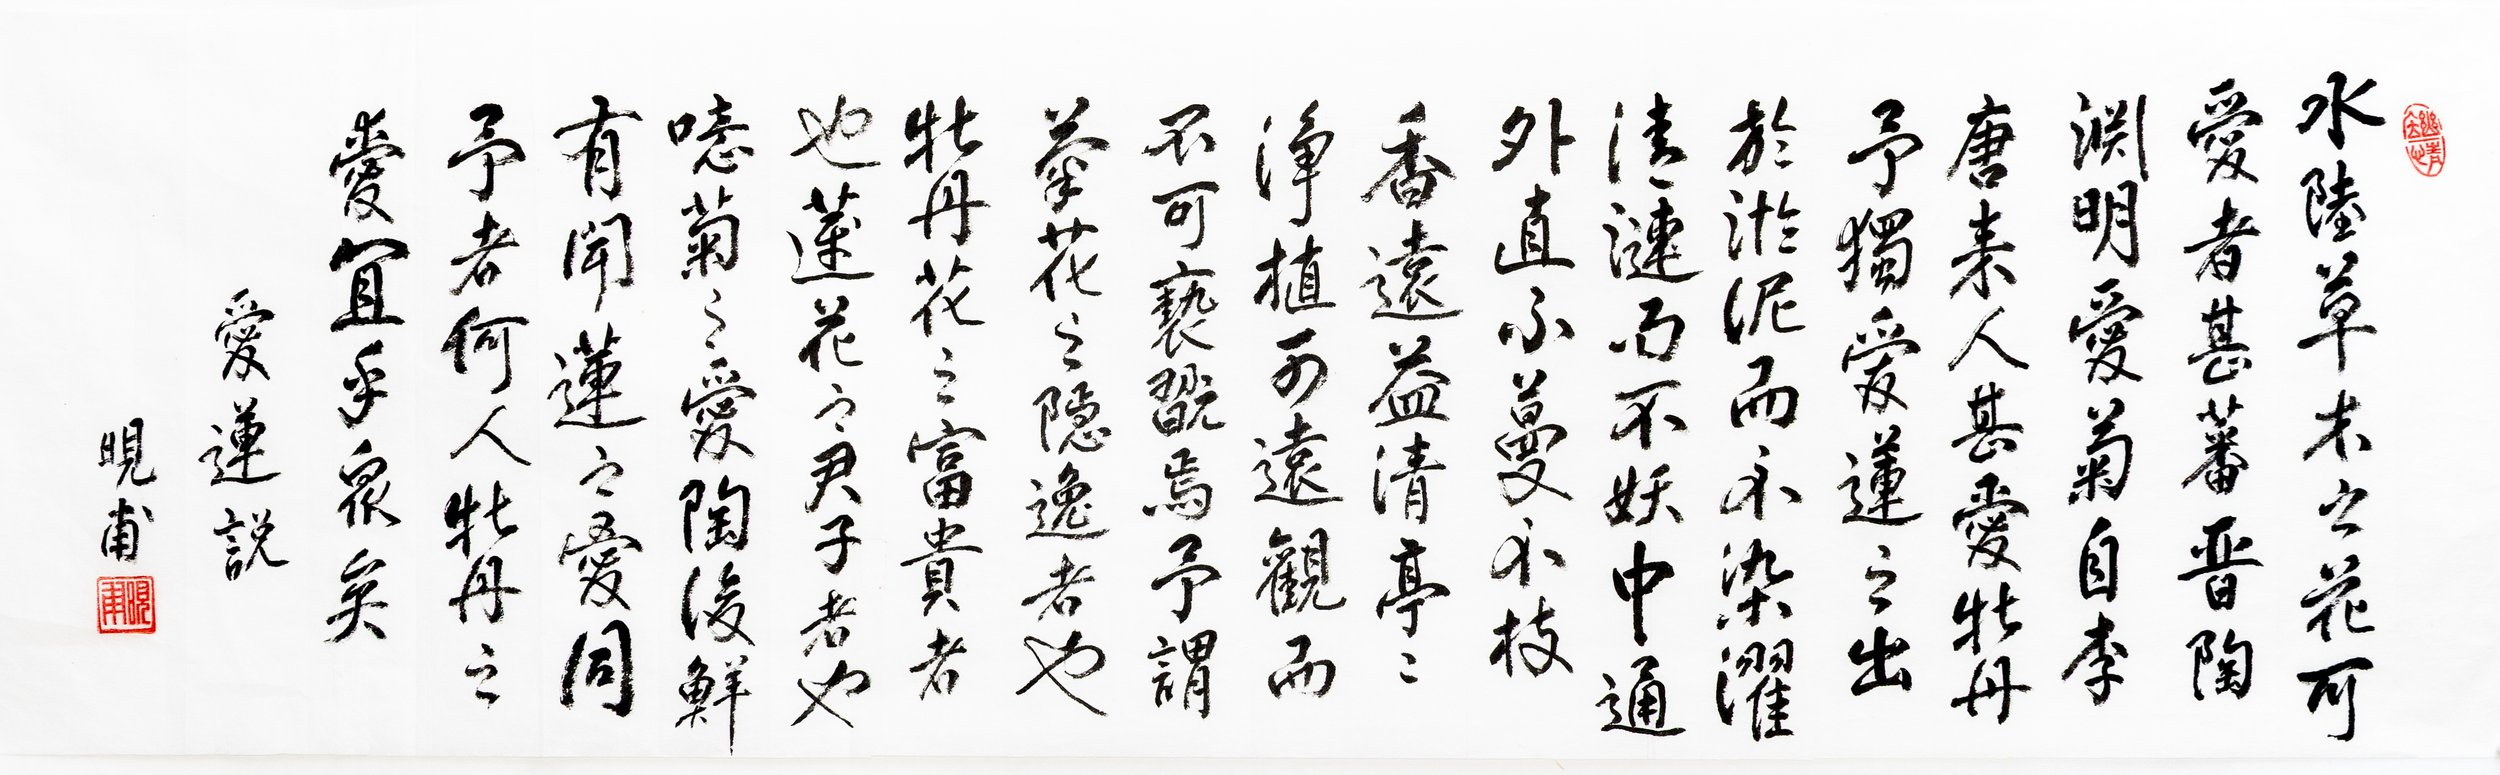 水陸草木之花可
愛者甚蕃晉陶
淵明愛菊自李
唐来人甚愛牡丹
予獨愛蓮之出
於淤泥而不染濯
清漣而不妖中通
外直不蔓不枝
香遠益清亭〻
淨植可遠觀而
不可褻翫焉予謂
菊花之隐逸者也
牡丹花之富貴者
也蓮花之君子者也
噫菊之愛陶後鮮
有聞蓮之愛同
予者何人牡丹之
愛宜乎眾矣
愛蓮説
晛甫
晛甫